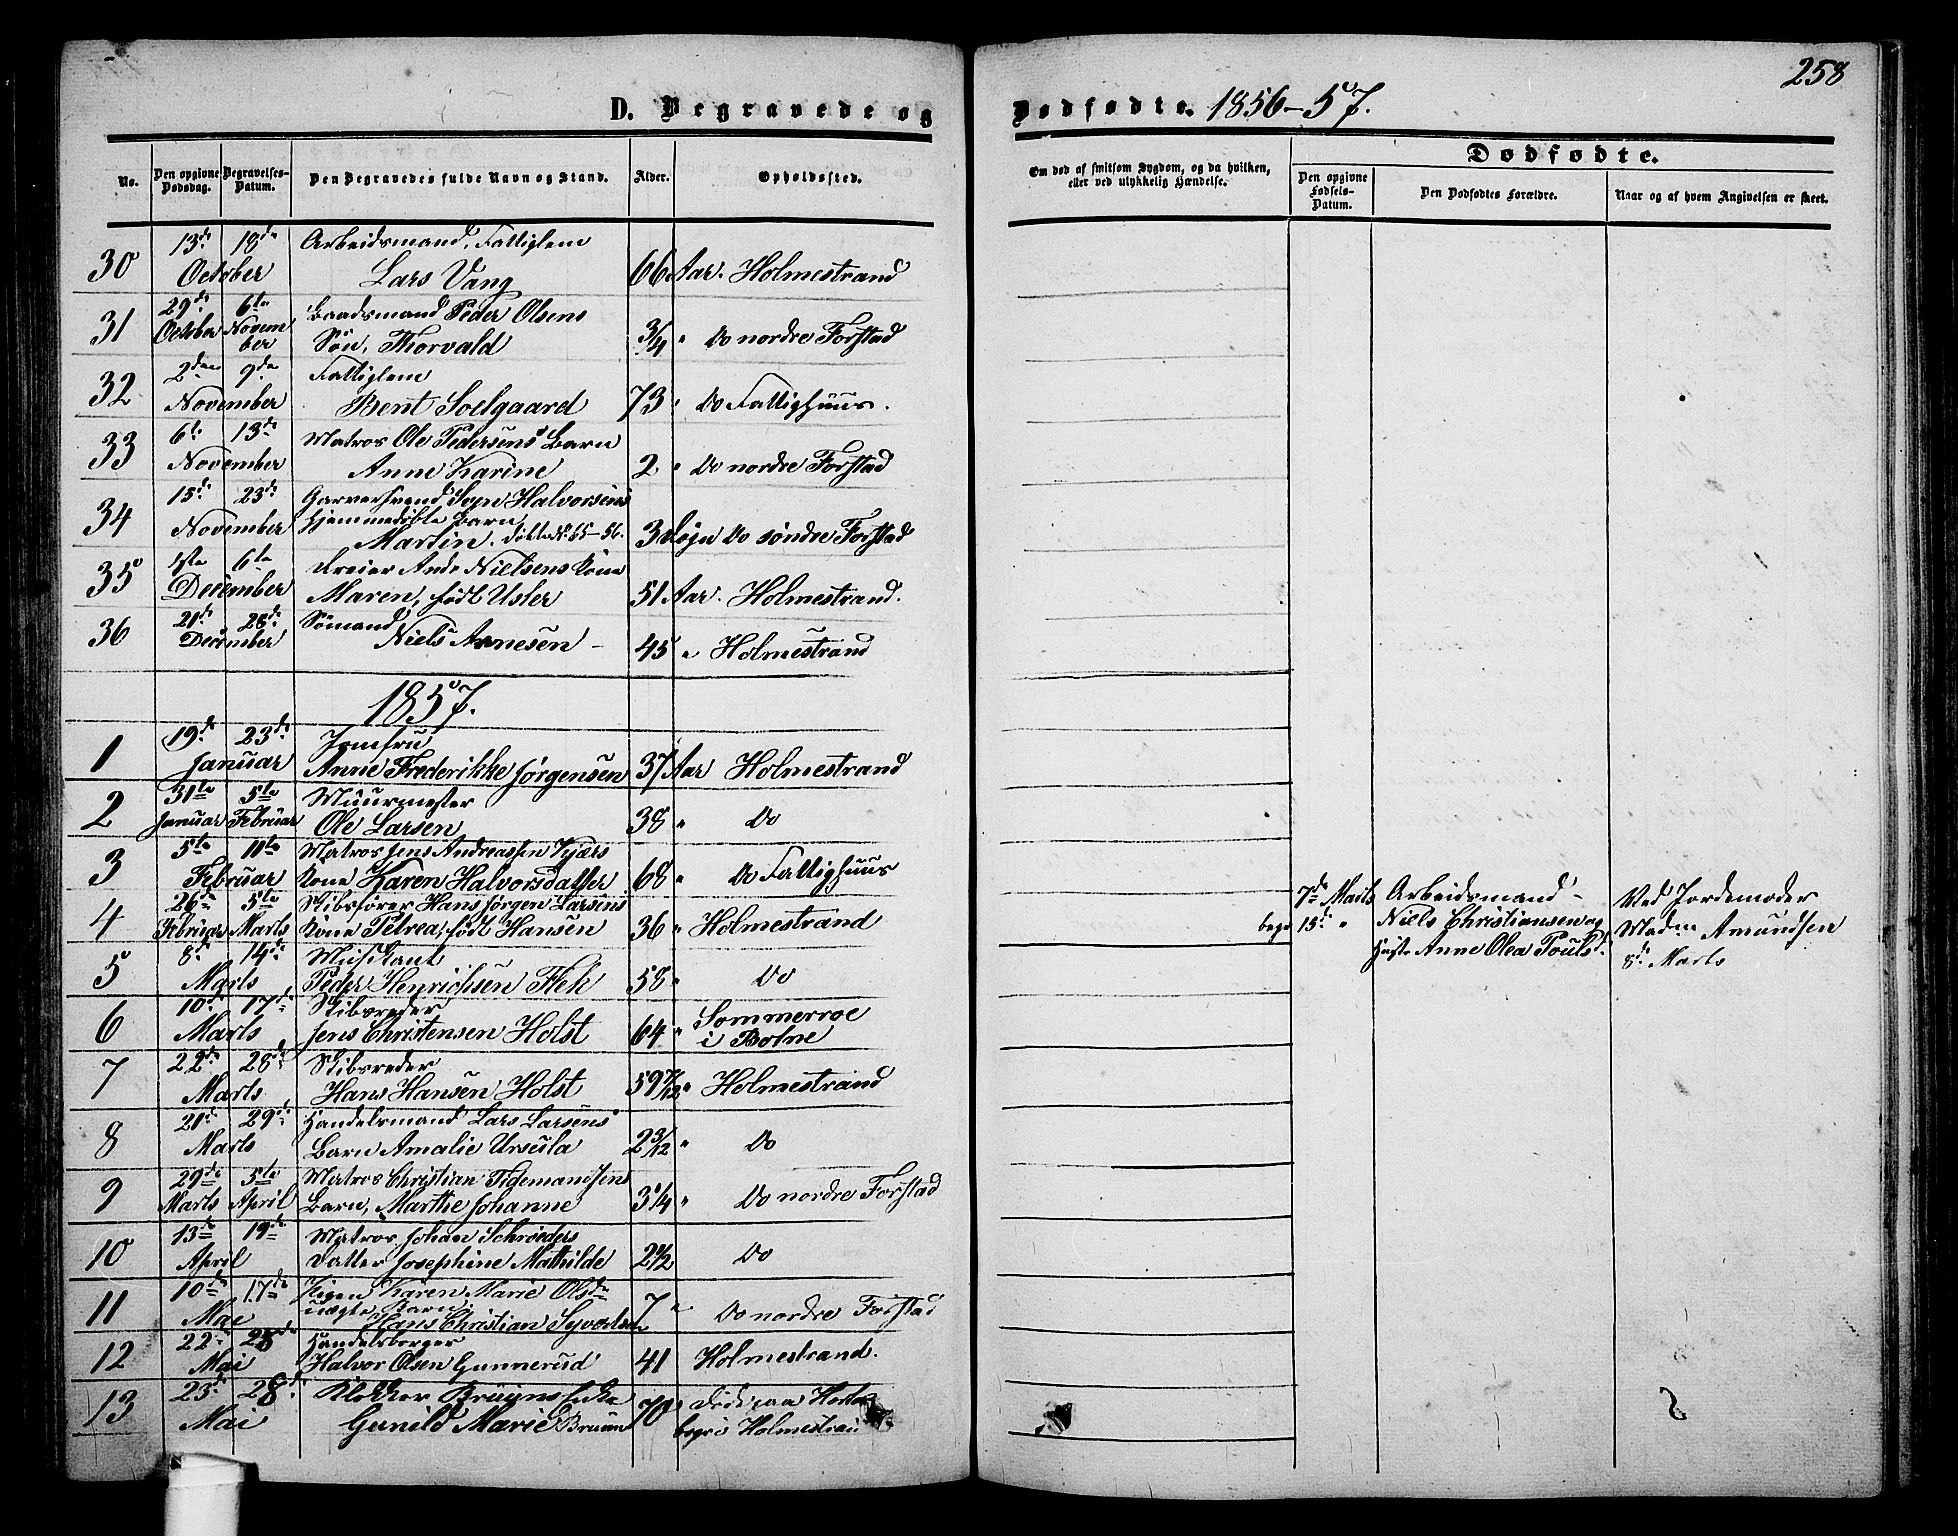 258
D. Begravede og Dødfødte. 1856-57.
No.
Den opgivne Dødsdag.
Begravelses-Datum.
Den Begravedes fulde Navn og Stand.
Alder.
Opholdssted.
Om død af smitsom Sygdom, og da hvilken,
eller ved ulykkelig Hændelse.
Dødfødte.
Den opgivne Fødsels-Datum.
Den Dødfødtes Forældre.
Naar og af hvem Angivelsen er skeet.
13de 18de Arbeidsmand, Fattiglem
30 October Lars Vang 66 Aar. Holmestrand
29de 6te Baadsmand Peder Olsens
31 October November Søn, Thorvald 3/4 " Do nordre Forstad
2den 9de Fattiglem
32 November Bent Solgaard 73 " Do Fattighuus.
6te 13de Matros Ole Pedersens Barn
33 November Anne Karine 2 " Do nordre Forstad
15de 23de Garversvend Halvorsens
hjemmedøbte Barn,
34 November Martin. 3 Do søndre Forstad
1ste 6te Dreier Nielsens Kone
35 December Maren, født Usler 51 Aar. Holmestrand.
21de 28de Sømand
36 December Niels Arnesen - 45 " Holmestrand
1857.
19de 23de Jomfru
1 Januar Anne Frederikke Jørgensen 37 Aar Holmestrand
31te 5te Muurmester
2 Januar Februar Ole Larsen 38 " Do
5te 11te Matros Jens Andreassen Kjærs
3 Februar Kone Karen Halvorsdatter 68 " Do Fattighuus
26de 5te Skibsfører Hans Jørgen Larsens
4 Februar Marts Kone Petrea, født Hansen 36 " Holmestrand
8de 14de Musikant
5 Marts Peder Henrichsen Flek 58 " Do
10de 17de Skibsreder
6 Marts Jens Christensen Holst 64 " Sommerroe i Botne
22de 28de Skibsreder
7 Marts Hans Hansen Holst 59 " Holmestrand
21de 29de Handelsmand Lars Larsens
8 Marts Barn Amalie Ursula 2 3/12 " Do
29de 5te Matros Christian Tidemandsens
9 Marts April Barn, Marthe Johanne 3 1/4 " Do nordre Forstad
13de 19de Matros Johan Schrøders
10 April Datter Josephine Mathilde 2 1/2 Do
10de 17de Pigen Karen Marie Olsd
uægte Barn,
11 Mai Hans Christian 7 " Do nordre Forstad
22de 28de Handelsborger
12 Mai Halvor Olsen Gunnerud 41 Holmestrand.
23de 28de Klokker Bruuns Enke
13 Mai Gunild Marie Bruun 70 Død paa
begr i Holmestrand
7de Marts
begr 15de "
Arbeidsmand
Niels Christiansen og
Hustr Anne Olea Pouls
Ved Jordemoder
Madm Amundsen
8de Marts